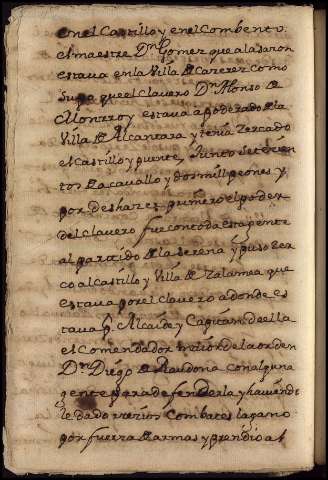 en el Castillo y en el Combento.
el maestre Dn Gomez que a la saron
estava en la Villa de Carerez como
supo que el Clavero Dn Alonso de
Monrroy estava apoderado de la
Villa de Alcantara y tenia zercado
el Castillo y puente, Junto setezien
tos de acavallo y dos mill peones y
por deshazer primero el poder
del Clavero fue con toda esta jente
al partido de la Serena y puso zer
co al Castillo y Villa de Zalamea que
estava por el Clavero adonde es
tava p. Alcaide y Capitan de ella
el Comendador maior de la orden
Dn Diego de con alguna
gente para defenderla y haviendo
le dado varios Combates la gano
por fuerza de armas y prendio al